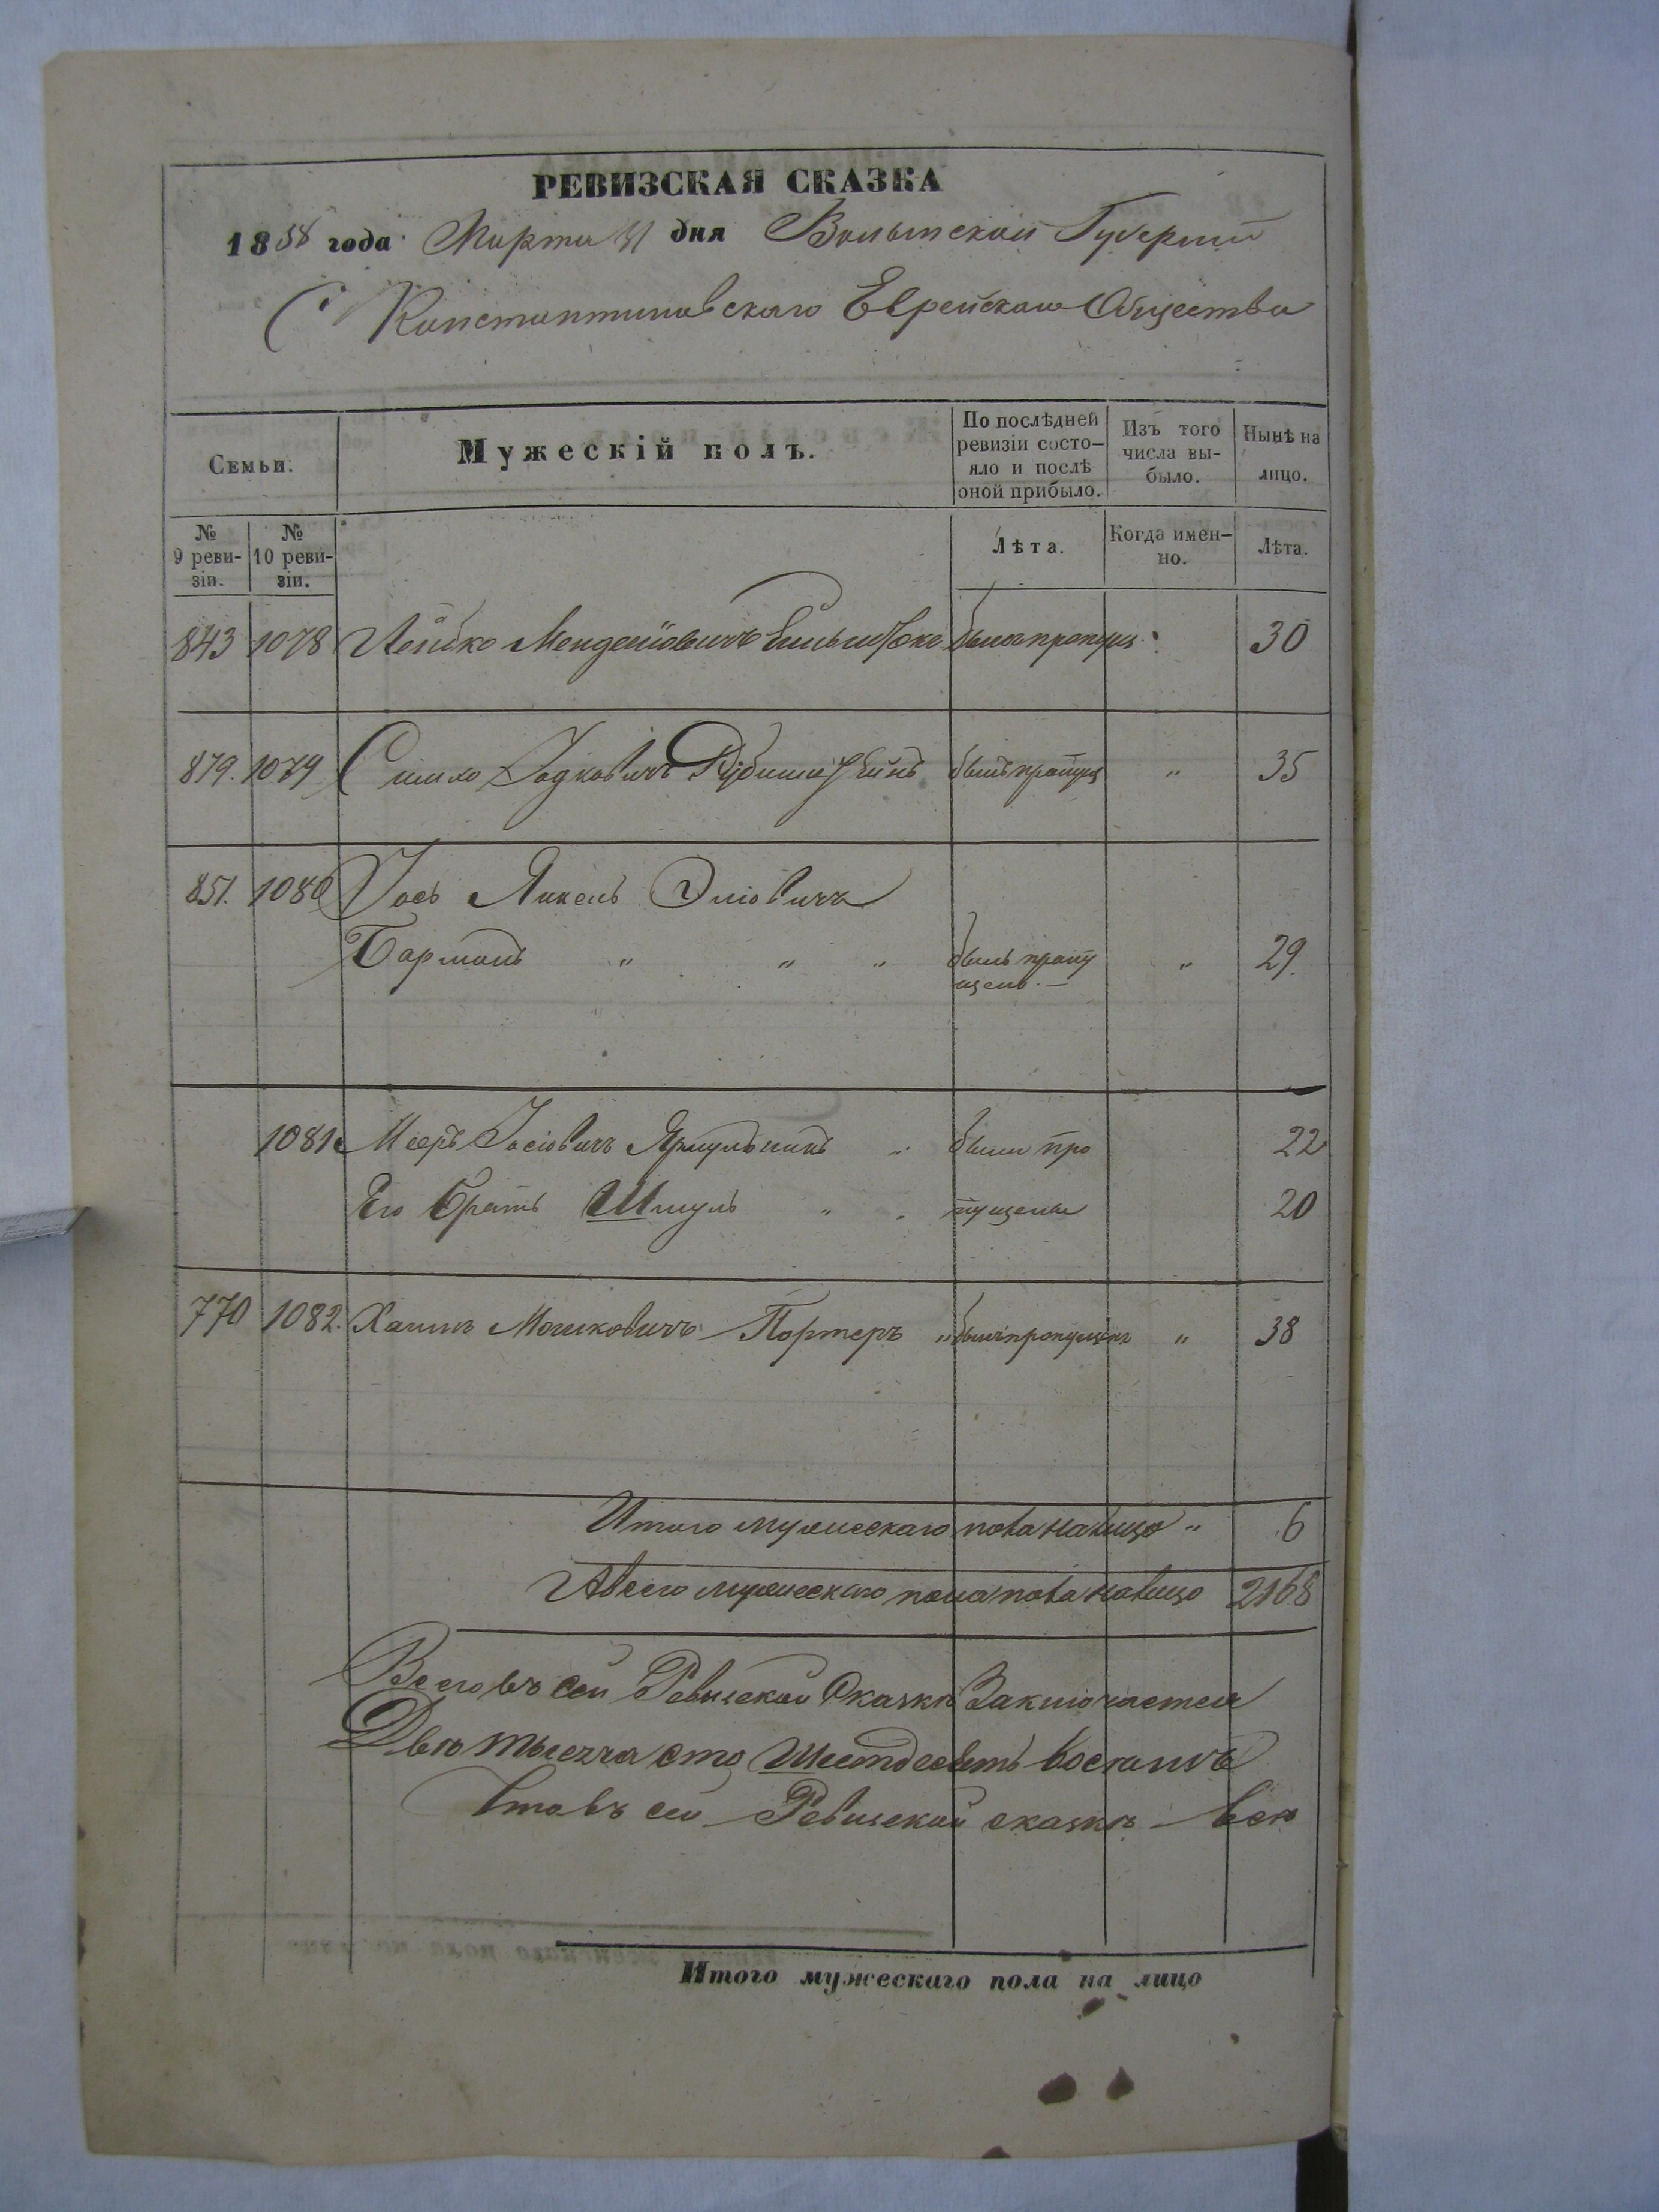 РЕВИЗСКАЯ СКАЗКА
1858 года Марта 31 дня Волынской Губернии
С Константиновскаго Еврейскаго Общества
Семьи.
Мужескій полъ.
По послѣдней ревизіи состо-
яло и послѣ
оной прибыло.
Изъ того
числа вы-
было.
Нынѣ на
лицо.
№
9 реви-
зіи.
№
10 реви-
зіи.
Лѣта.
Когда имен-
но.
Лѣта.
843 1078 Лейбко 30
879. 1079 Симха былъ пропущ " 35
851. 1080 Іось Янкель
" " " былъ пропу " 29.
щенъ. —
1081 Мееръ Іосіовичъ Ярмульникъ " были про 22
Его братъ Шмуль " " пущены 20
770 1082. Хаимъ Мошковичъ Портеръ " былъ пропущенъ " 38
Итого мужескаго пола налицо " 6
А всего мужескаго пола налицо 2168
Всего въ сей Ревизской Сказкѣ Заключается
Двѣ тысячи сто Шестдесятъ восемь
Что въ сей Ревизской сказкѣ всѣ
Итого мужескаго пола на лицо